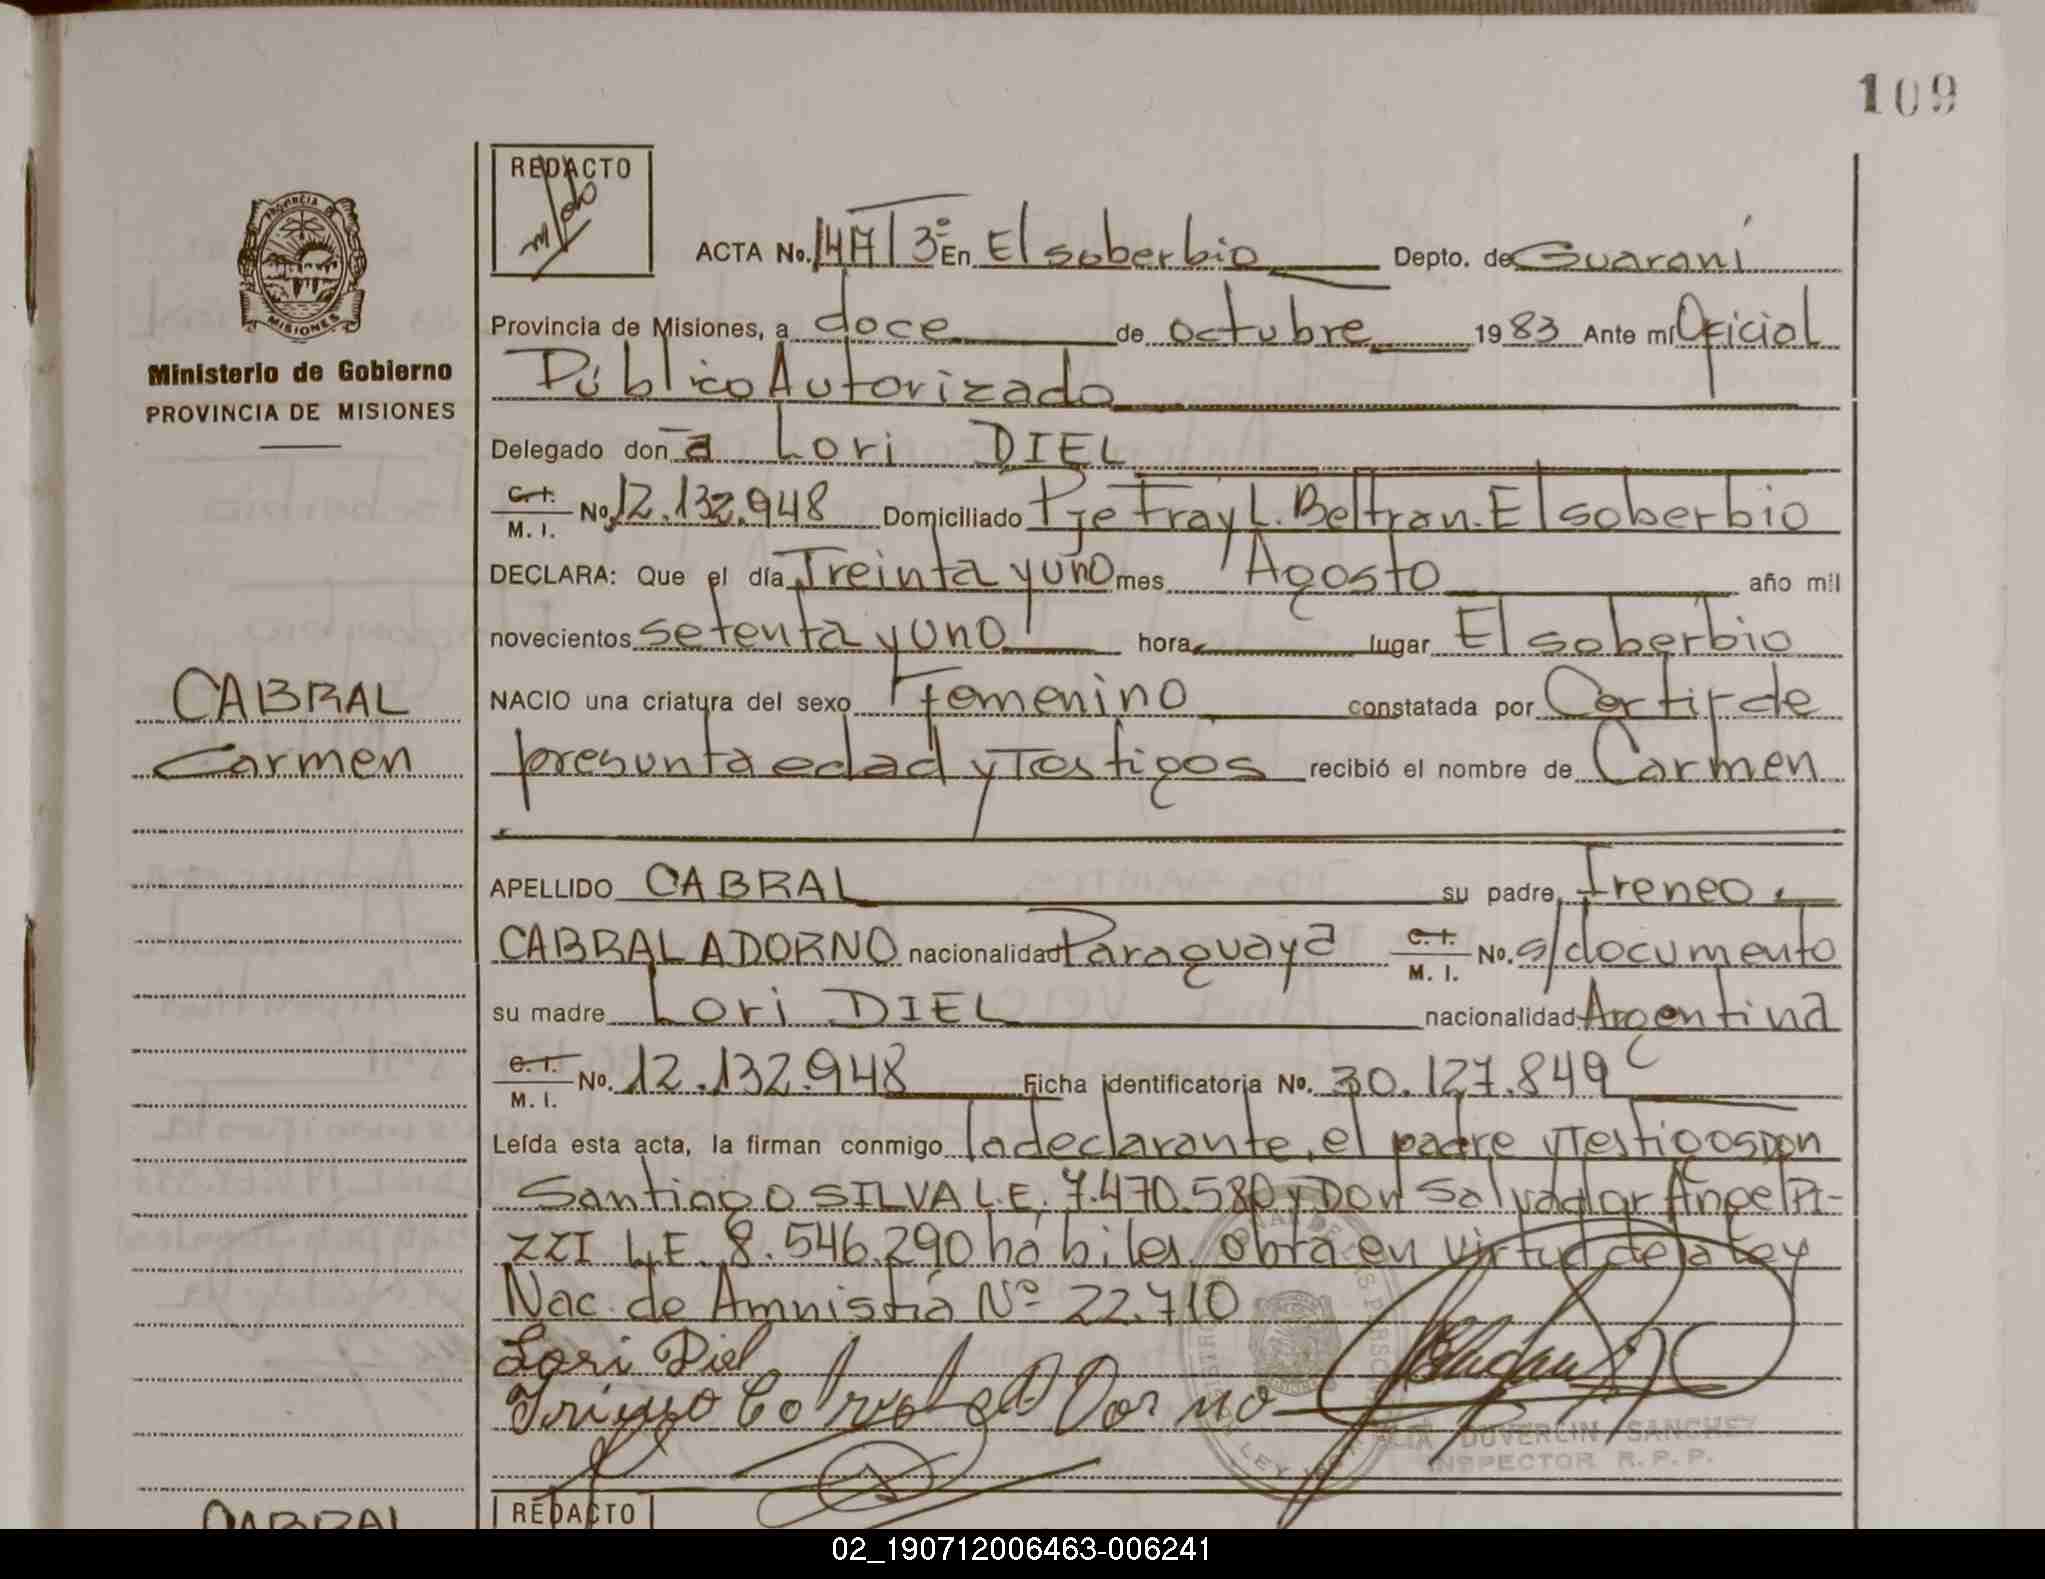 109
REDACTO
PROVINCIA DE
MISIONES
Ministerio de Gobierno
PROVINCIA DE MISIONES
ACTA No. 147 T 3º En El soberbio Depto. de Guaraní
Provincia de Misiones, a doce de octubre 1983 Ante mí Oficial
Público Autorizado
Delegado don a Lori DIEL
C. I. M. I. No. 12.132.948 Domiciliado Pje Fray L. Beltran. El soberbio
DECLARA: Que el día Treinta y uno mes Agosto año mil
novecientos setenta y uno hora lugar El soberbio
CABRAL
NACIO una criatura del sexo Femenino constatada por Certif de
Carmen
presunta edad y Testigos recibió el nombre de Carmen
APELLIDO CABRAL su padre Ireneo
CABRAL ADORNO nacionalidad Paraguaya C. I. M. I. No. s/documento
su madre Lori DIEL nacionalidad Argentina
C. I. M. I. No. 12.132.948 Ficha identificatoria No. 30.127.849
Leída esta acta, la firman conmigo la declarante, el padre y Testigos Don
Santiago SILVA L.E. 7.470.580 y Don Salvador Angel PI-
ZZI L.E. 8.546.290 hábiles, obra en virtud de la Ley
Nac. de Amnistía Nº 22.710
Lori Diel
DUVERLIN SANCHEZ
INSPECTOR R. P. P.
CABRAL
REDACTO
02_190712006463-006241